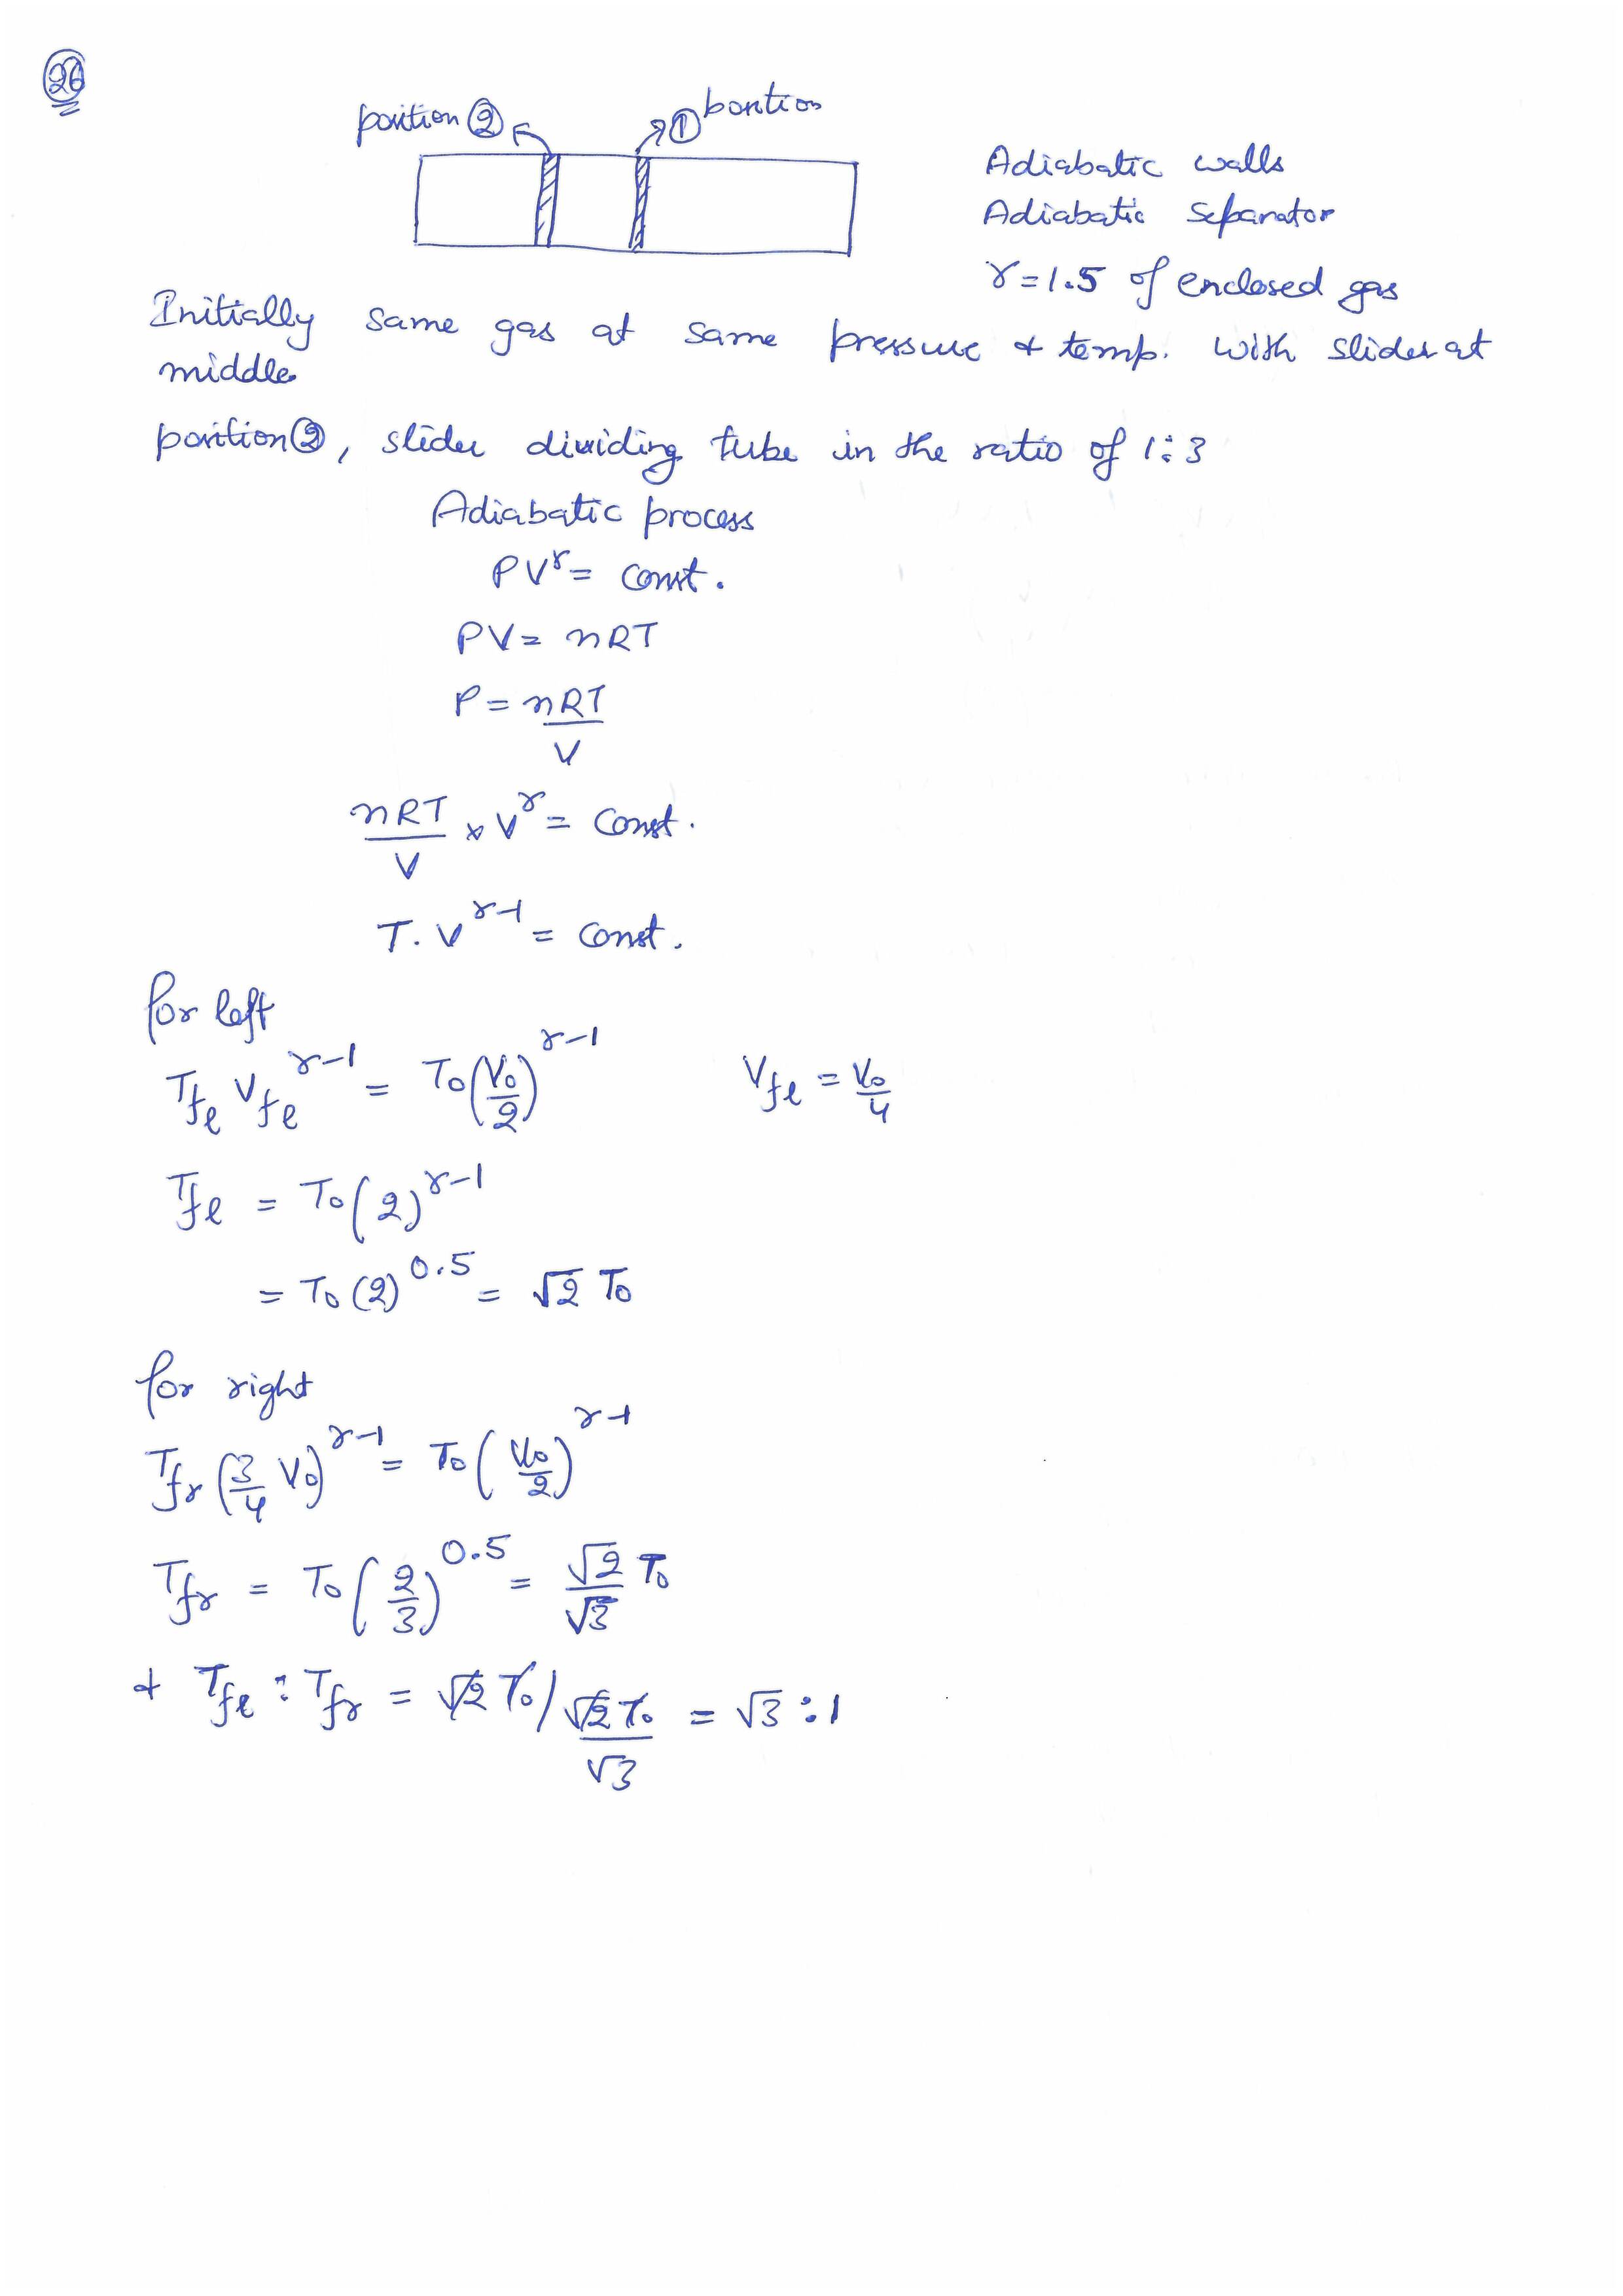 26
position ② ① position
Adiabatic walls
Adiabatic separator
γ = 1.5 of enclosed gas
Initially same gas at same pressure & temp. with slider at
middle
position ②, slider dividing tube in the ratio of 1:3
Adiabatic process
PV^γ = const.
PV = nRT
P = nRT/V
nRT/V × V^γ = const.
T. V^(γ-1) = const.
for left
T_fl V_fl^(γ-1) = T0 (V0/2)^(γ-1) V_fl = V0/4
T_fl = T0 (2)^(γ-1)
= T0 (2)^0.5 = √2 T0
for right
T_fr (3/4 V0)^(γ-1) = T0 (V0/2)^(γ-1)
T_fr = T0 (2/3)^0.5 = √2/√3 T0
& T_fl : T_fr = √2 T0 / √2 T0/√3 = √3 : 1